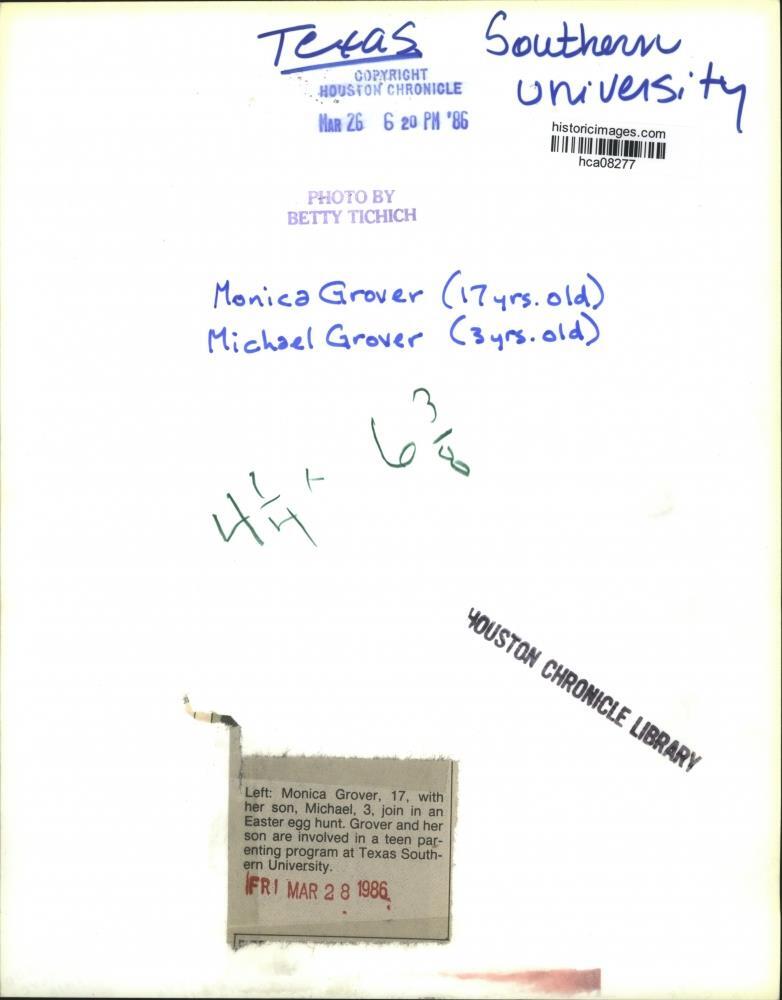 Texas Southern
University
COPYRIGHT
HOUSTON CHRONICLE
MAR 26 6 20 PM '86
historicimages.com
hca08277
PHOTO BY
BETTY TICHICH
Monica Grover (17 yrs. old)
Michael Grover (3 yrs. old)
6 3/8
4 1/4
HOUSTON CHRONICLE LIBRARY
Left: Monica Grover, 17, with
her son, Michael, 3, join in an
Easter egg hunt. Grover and her
son are involved in a teen par-
enting program at Texas South-
ern University.
FRI MAR 28 1986